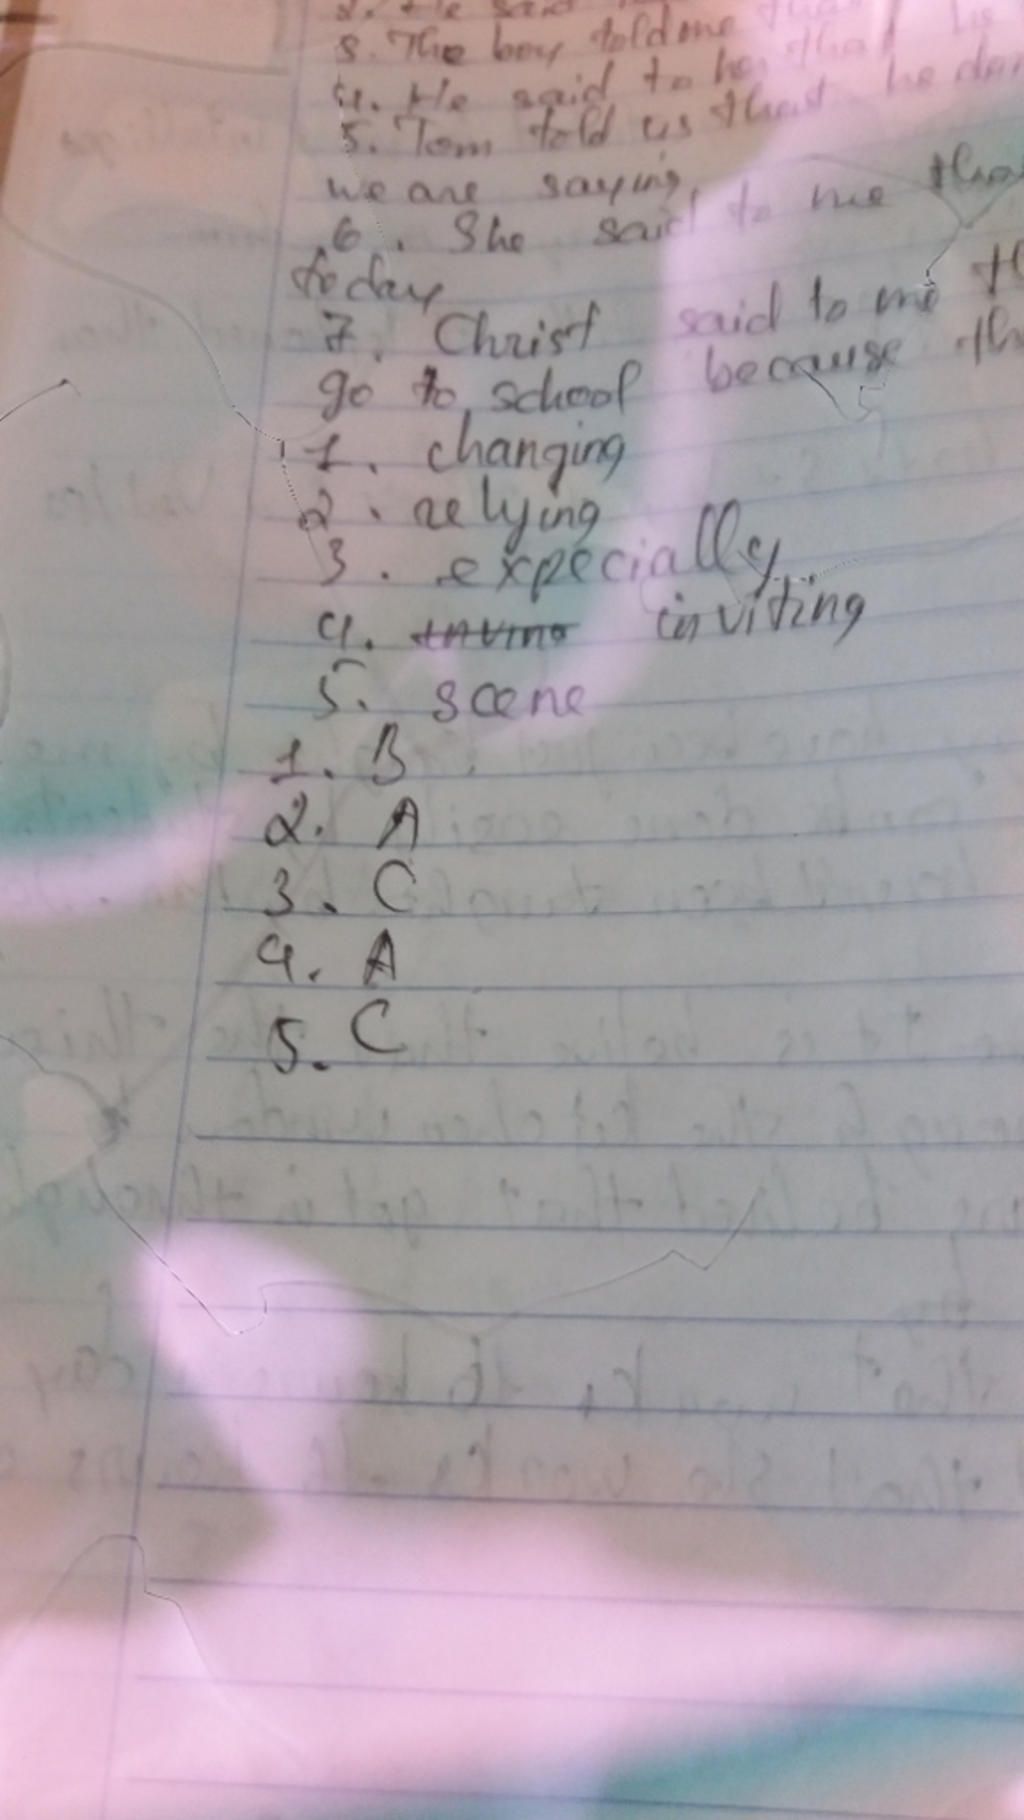 2. He said
3. The boy told me that his
4. He said to her that
5. Tom told us that he
we are saying.
6. She said to me
today
7. Christ said to me
go to school because
1. changing
2. relying
3. expecially
4. inviting
5. scene
1. B
2. A
3. C
4. A
5. C